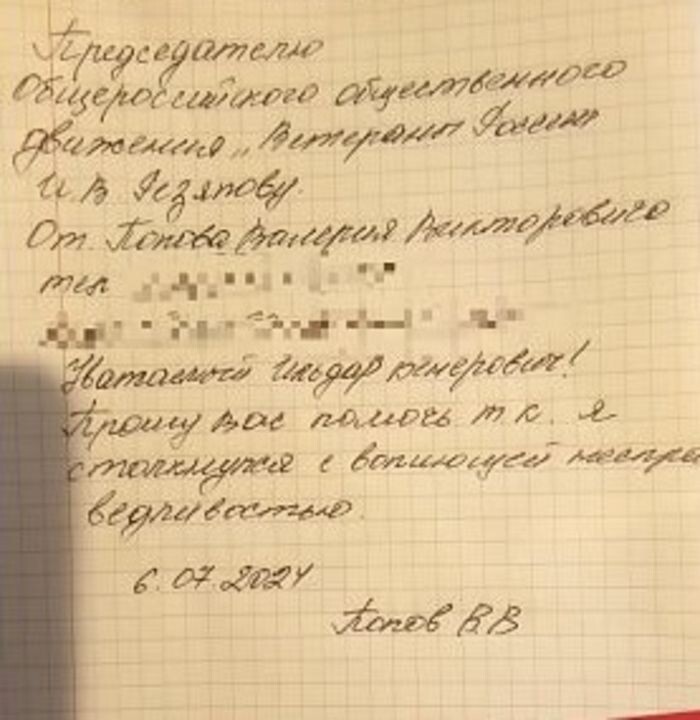 Председателю
Общероссийского общественного
движения „Ветераны России"
И.В Резяпову.
От Попова Валерия Викторовича
тел
Уважаемый Ильдар Венерович!
Прошу Вас помочь т к. я
столкнулся с вопиющей неспра
ведливостью.
6.07.2024
Попов В.В